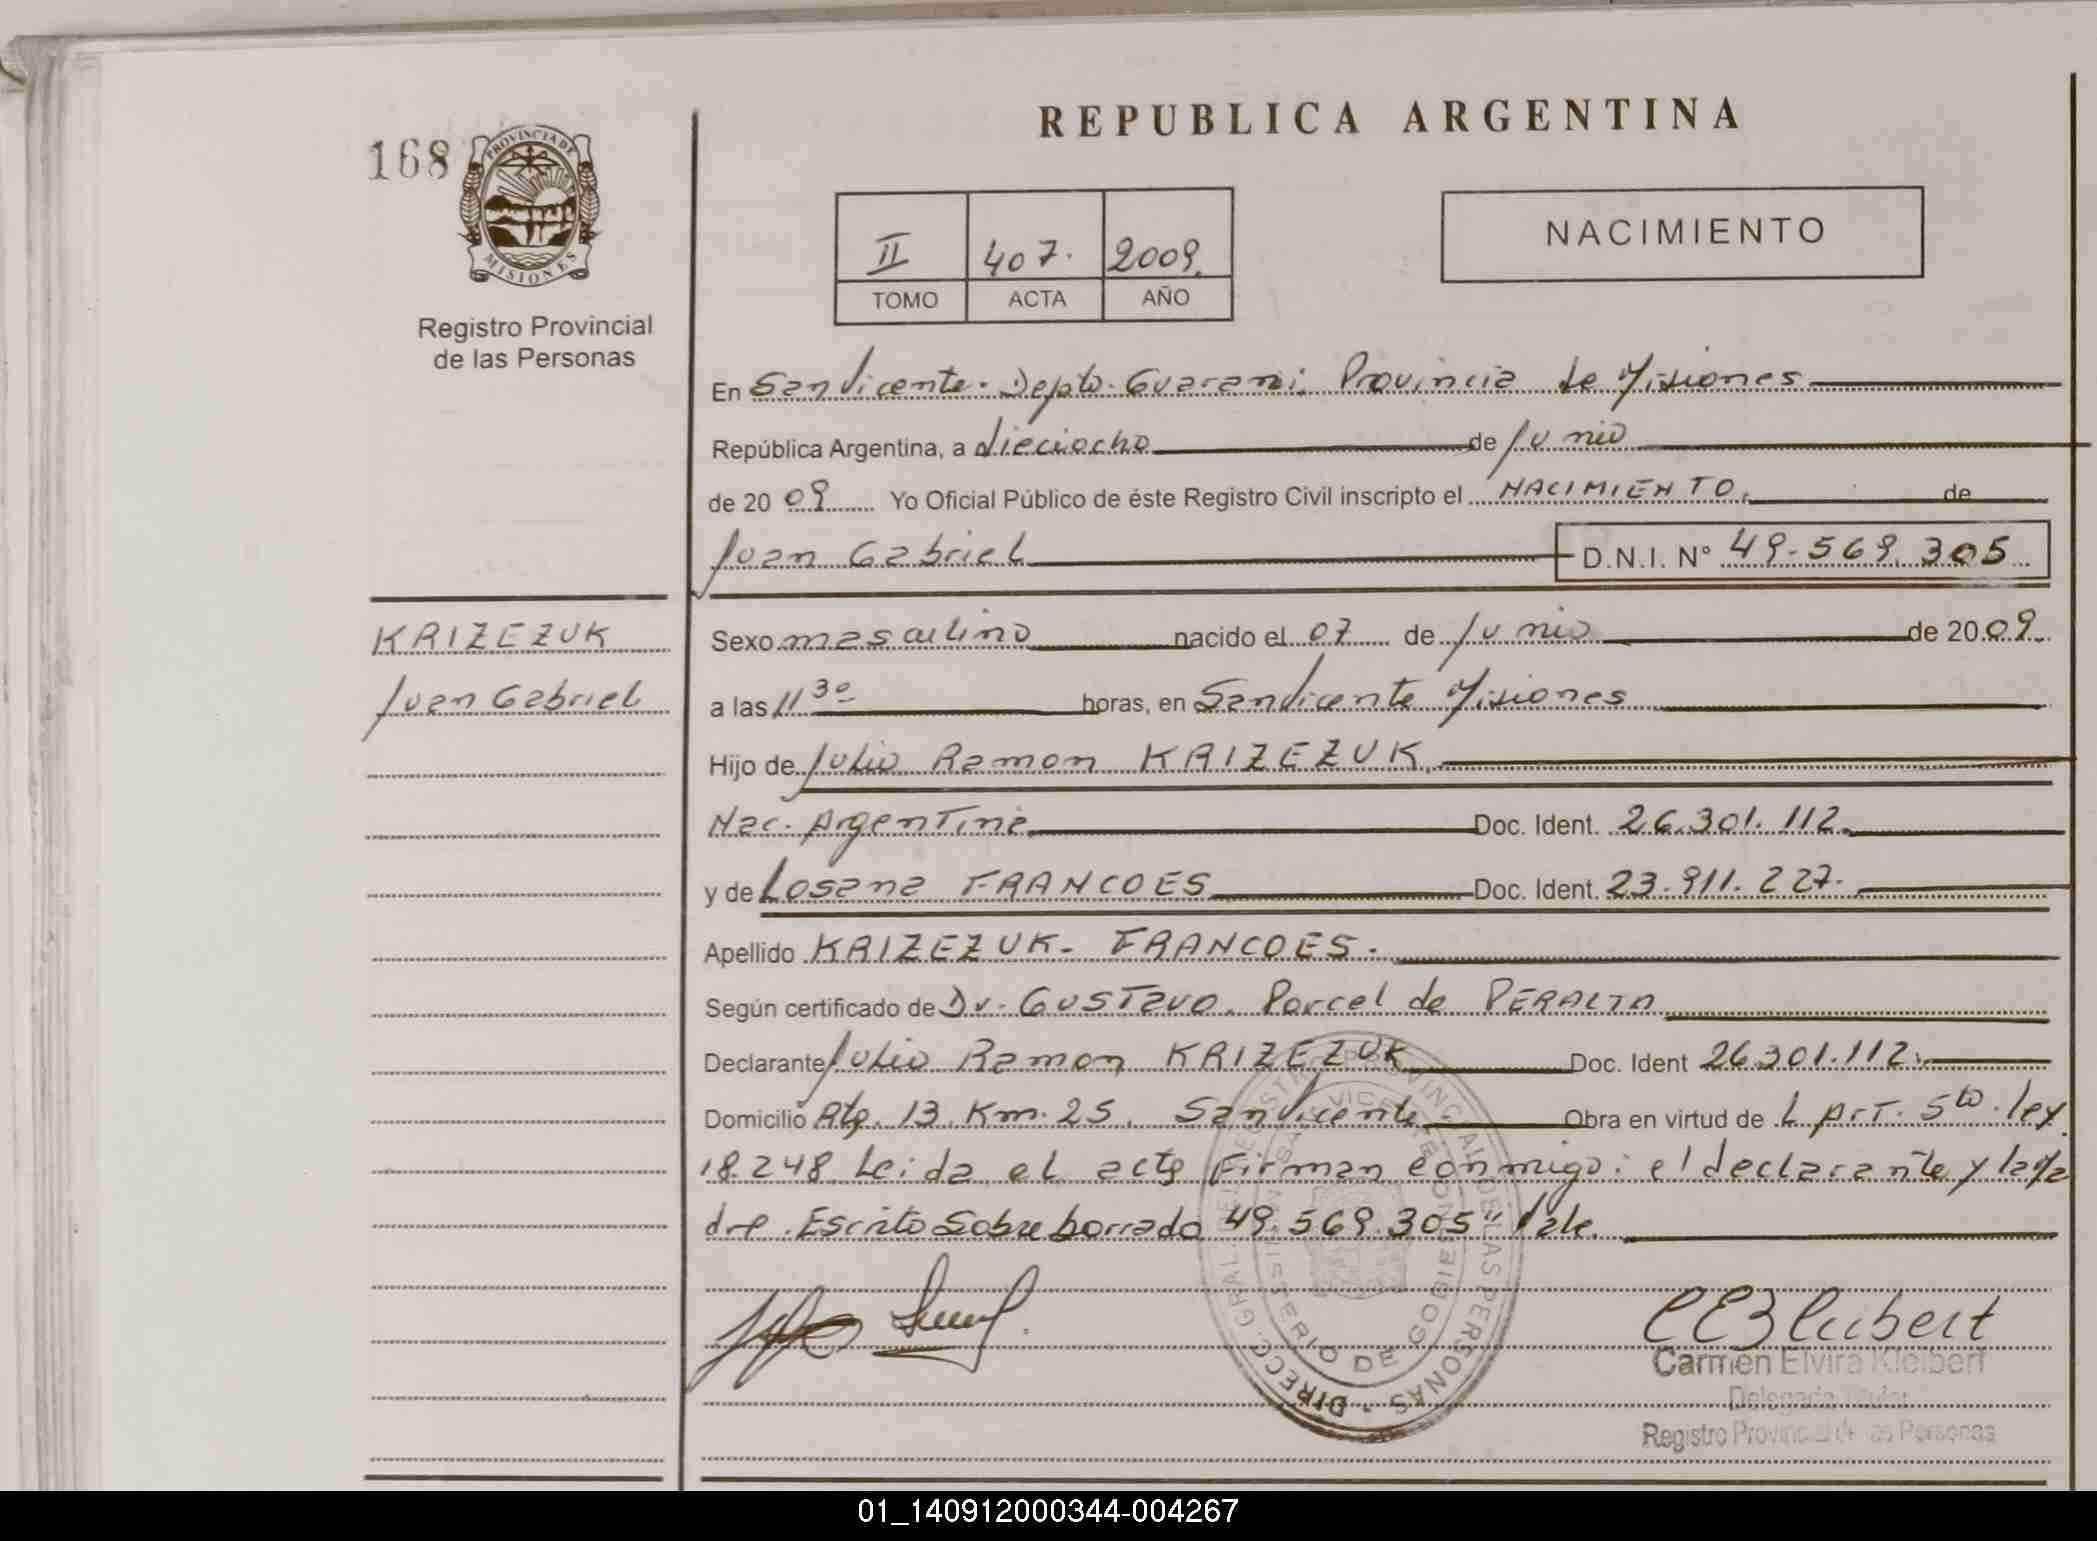 REPUBLICA ARGENTINA
168
PROVINCIA DE
MISIONES
Registro Provincial
de las Personas
II 407. 2009.
TOMO ACTA AÑO
NACIMIENTO
En San Vicente. Depto. Guarani. Provincia de Misiones
República Argentina, a dieciocho de Junio
de 2009 Yo Oficial Público de éste Registro Civil inscripto el NACIMIENTO. de
Juan Gabriel D.N.I. N° 49.569.305
KRIZEZUK
Juan Gabriel
Sexo masculino nacido el 07 de Junio de 2009.
a las 11 30 horas, en San Vicente Misiones
Hijo de Julio Ramon KRIZEZUK.
Nac. Argentina Doc. Ident. 26.301.112.
y de Losana FRANCOES Doc. Ident. 23.911.227.
Apellido KRIZEZUK- FRANCOES.
Según certificado de Dr. GUSTavo. Porcel de PERALTA
Declarante Julio Ramon KRIZEZUK Doc. Ident 26.301.112.
Domicilio Rta. 13. Km. 25. San Vicente Obra en virtud de L Art. 5to. ley
18.248. Leida el acta Firman conmigo: el declarante y la Ma
dre. Escrito sobre borrado 49.569.305" Vale.
DIRECC. GRAL. DEL REGISTRO PROVINCIAL DE LAS PERSONAS
SAN VICENTE MISIONES
MINISTERIO DE GOBIERNO
CEKleibert
Carmen Elvira Kleibert
Delegada Titular
Registro Provincial de las Personas
01_140912000344-004267